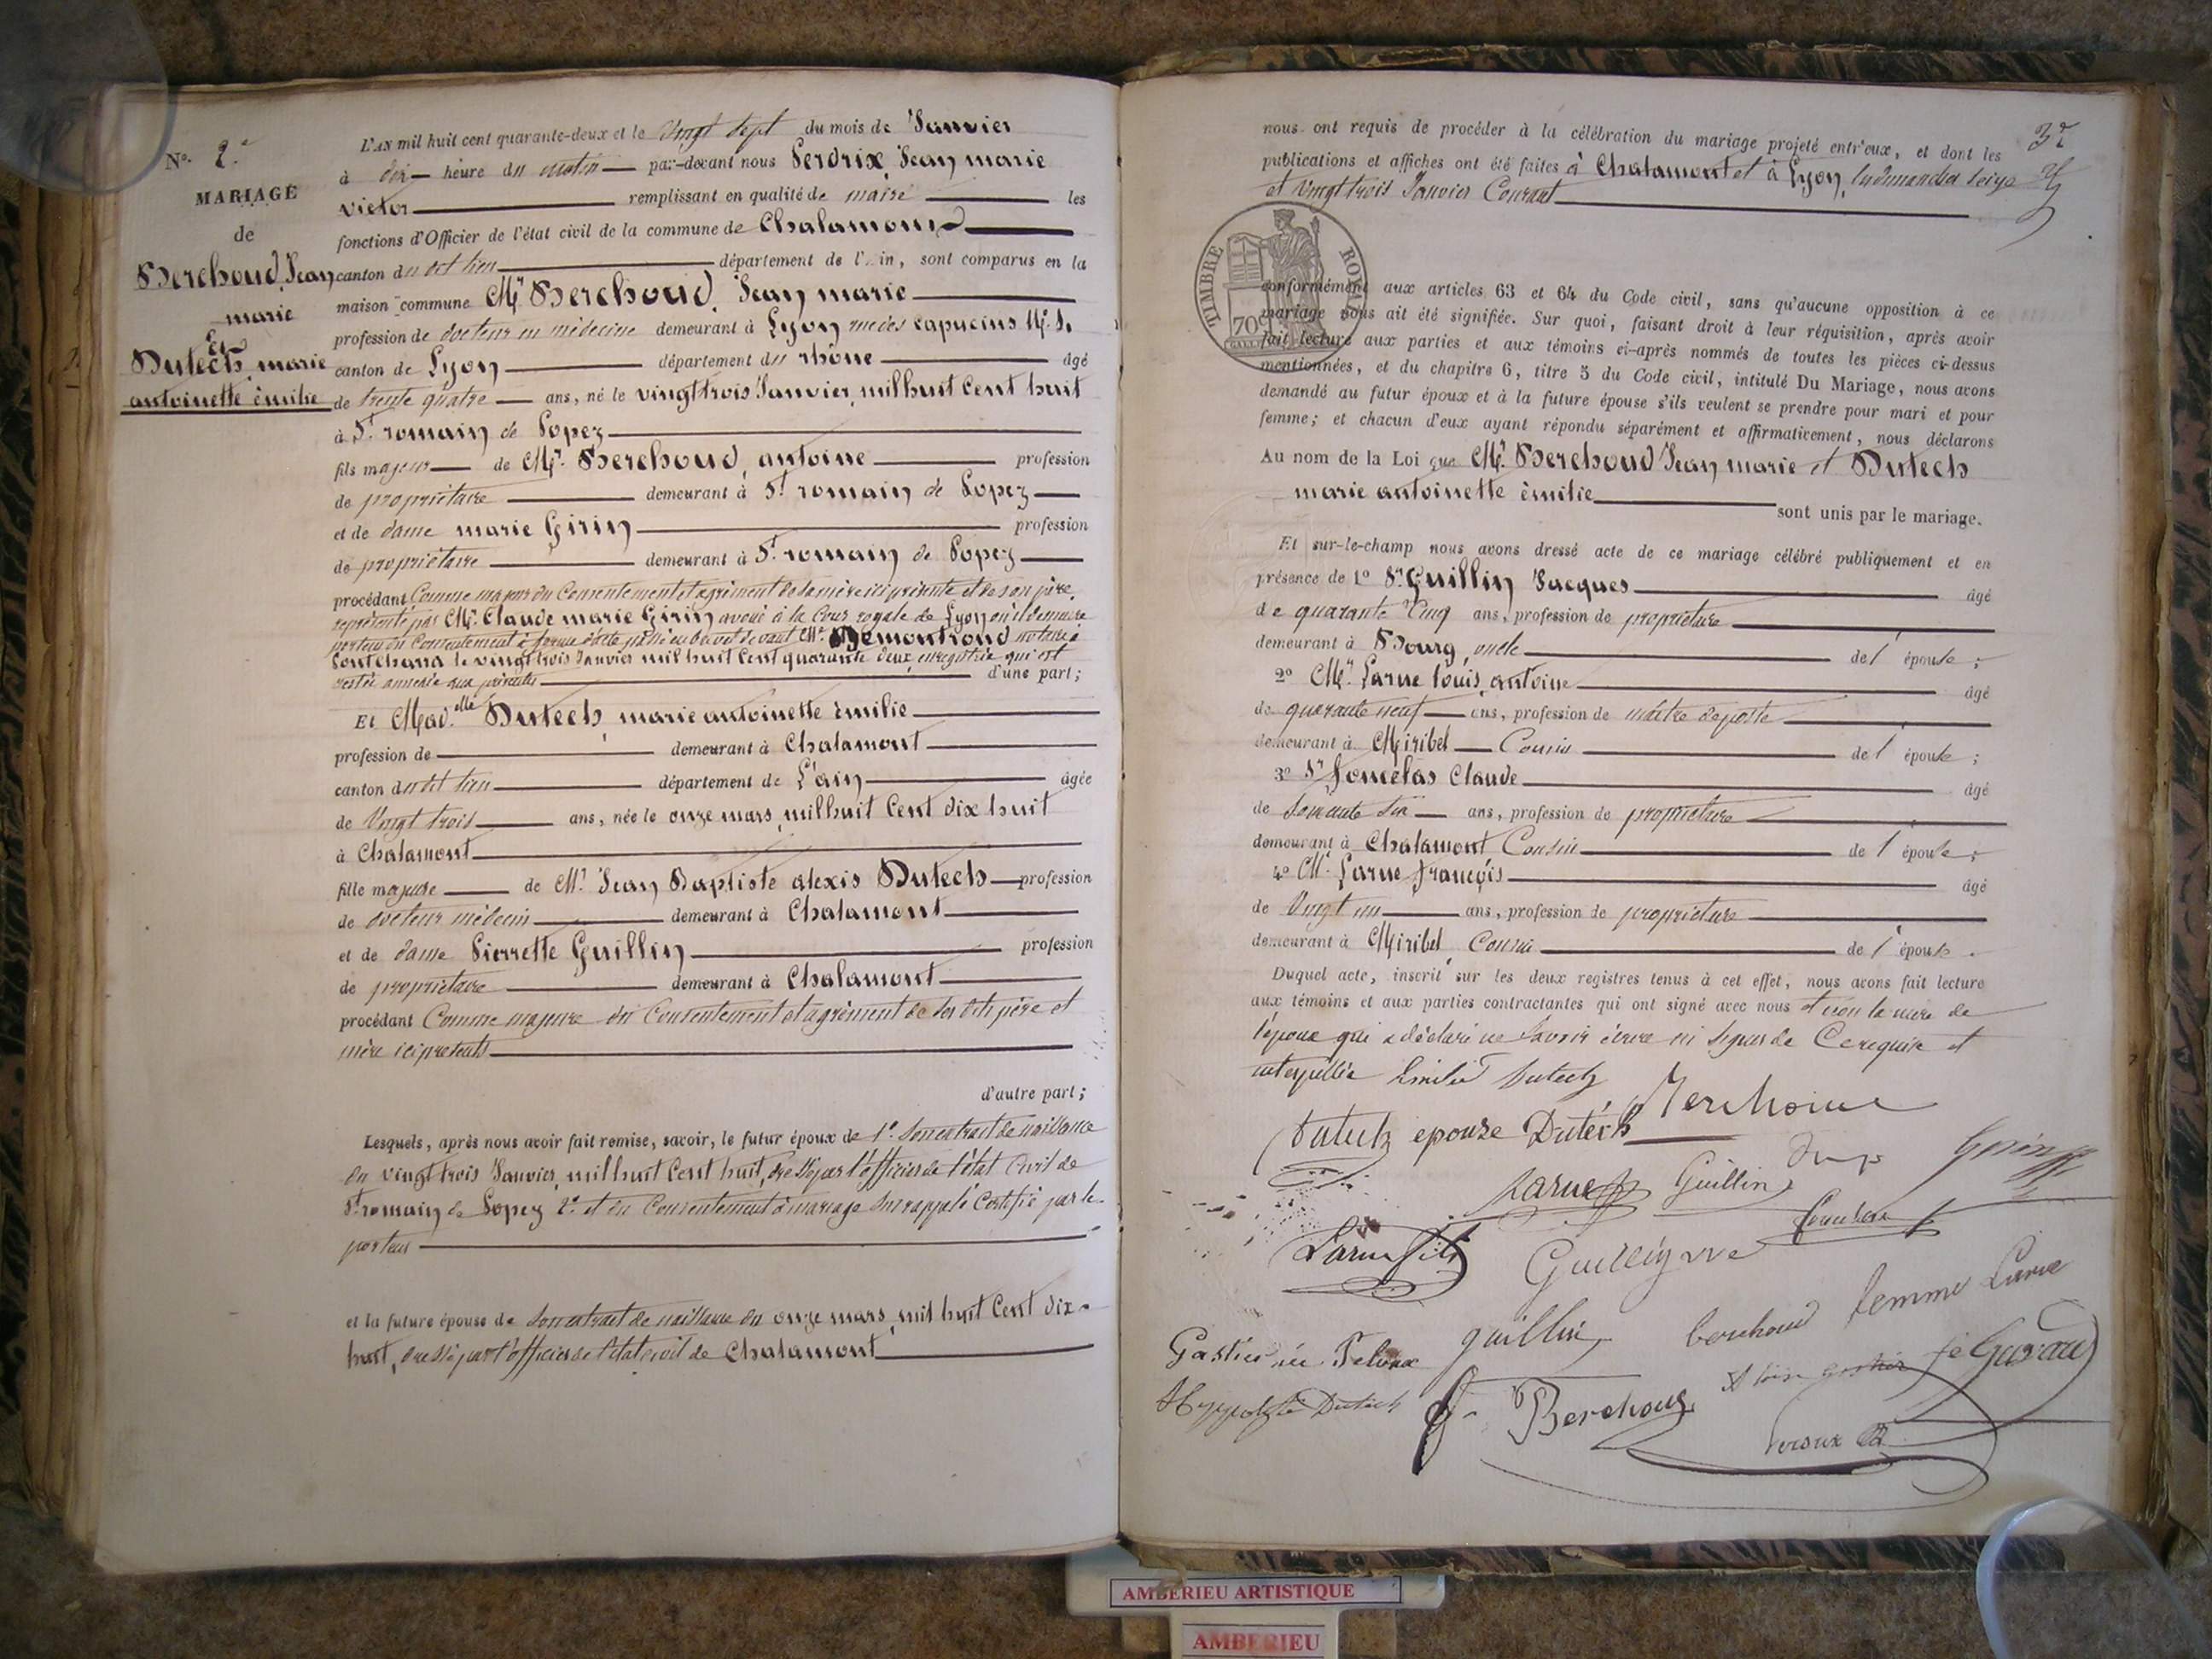 N.º 2.e
MARIAGE
de
Berchoud Jean
marie
Et
Dutech marie
antoinette èmilie
L'AN mil huit cent quarante-deux et le Vingt Sept du mois de Janvier
à dix heure du matin par-devant nous Perdrix Jean marie
victor remplissant en qualité de maire les
fonctions d'Officier de l'état civil de la commune de Chalamont
canton du dit lieu département de l'Ain, sont comparus en la
maison commune Mr Berchoud Jean marie
profession de docteur en médecine demeurant à Lyon rue des capucins No.
canton de Lyon département du rhône âgé
de trente quatre ans, né le vingt trois Janvier mil huit Cent huit
à St. romain de Popez
fils majeur de Mr. Berchoud, antoine profession
de propriétaire demeurant à St. romain de Popez
et de dame marie Girin profession
de propriétaire demeurant à St. romain de Popez
procédant Comme majeur du Consentement et agrèment de sa mère ici présente et de son père
représenté par Mr. Claude marie Girin avoué à la Cour royale de Lyon où il demeure
porteur du Consentement à forme d'acte passé en brevet devant Mr. notaire à
Pontcharra le vingt trois Janvier mil huit Cent quarante deux, enregistrée qui est
restée annexée aux présentes d'une part;
Et Mad.elle Dutech, marie antoinette èmilie
profession de demeurant à Chalamont
canton du dit lieu département de L'ain âgée
de Vingt trois ans, née le onze mars mil huit Cent dix huit
à Chalamont
fille majeure de Mr. Jean Baptiste alexis Dutech profession
de docteur médecin demeurant à Chalamont
et de dame Pierrette Guillin profession
de propriétaire demeurant à Chalamont
procédant Comme majeure du Consentement et agrèment de ses dits père et
mère ici présents
d'autre part;
Lesquels, après nous avoir fait remise, savoir, le futur époux de 1º. Son extrait de naissance
du vingt trois Janvier mil huit Cent huit, dressé par l'officier de l'état Civil de
St. romain de Popez 2º. et du Consentement à mariage sus rappelé Certifié par le
porteur
et la future épouse de Son extrait de naissance du onze mars mil huit Cent dix
huit, dressé par l'officier de l'état civil de Chalamont
3e
nous ont requis de procéder à la célébration du mariage projeté entr'eux, et dont les
publications et affiches ont été faites à Chalamont et à Lyon, les dimanches Seize
et Vingt trois Janvier Courant
TIMBRE ROYAL
70c
conformément aux articles 63 et 64 du Code civil, sans qu'aucune opposition à ce
mariage nous ait été signifiée. Sur quoi, faisant droit à leur réquisition, après avoir
fait lecture aux parties et aux témoins ci-après nommés de toutes les pièces ci-dessus
mentionnées, et du chapitre 6, titre 5 du Code civil, intitulé Du Mariage, nous avons
demandé au futur époux et à la future épouse s'ils veulent se prendre pour mari et pour
femme; et chacun d'eux ayant répondu séparément et affirmativement, nous déclarons
Au nom de la Loi que Mr. Berchoud Jean marie et Dutech
marie antoinette èmilie sont unis par le mariage.
Et sur-le-champ nous avons dressé acte de ce mariage célébré publiquement et en
présence de 1º Sr. Guillin Jacques âgé
de quarante Cinq ans, profession de propriétaire
demeurant à Bourg, oncle de l'épouse;
2º Mr. Larue louis, antoine âgé
de quarante neuf ans, profession de maitre de poste
demeurant à Miribel Cousin de l'épouse;
3º Sr Claude âgé
de Soixante Six ans, profession de propriétaire
demeurant à Chalamont Cousin de l'épouse;
4º Mr. Larue françois âgé
de Vingt un ans, profession de propriétaire
demeurant à Miribel Cousin de l'épouse.
Duquel acte, inscrit sur les deux registres tenus à cet effet, nous avons fait lecture
aux témoins et aux parties contractantes qui ont signé avec nous et non la mère de
l'époux qui a déclaré ne Savoir écrire ni Signer de Ce requise et
interpellée Emilie Dutech
Berchoud
Dutech epouse Dutéch
Larue Guillin Girin
Larue fils
guillin berchoud femme Larue
Gastier née
Hyppolyte Dutech Berchoud
AMBERIEU ARTISTIQUE
AMBERIEU